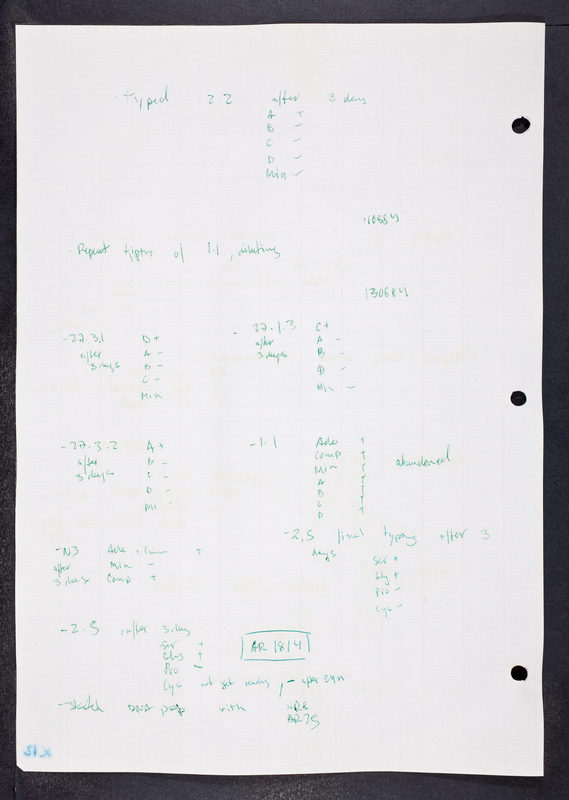 · typed 2.2 after 3 days
A +
B -
C -
D -
Min -
110684
· Repeat typing of 1.1, dilutions
130684
- 27.3.1 D +
after A -
3 days B -
C -
Min
- 27.1.3 C +
after A -
3 days B -
D -
Min -
- 27.3.2 A +
after B -
3 days C -
D -
Min -
- 1.1 Ade +
Comp +
Min +
A +
B +
C +
D +
abandoned
- N3 Ade, +
after Min -
3 days Comp +
- 2.5 final typing after 3
days
Ser +
Gly +
Pro -
Cys -
- 2.5 , after 3 days
Ser +
Gly +
Pro -
Cys not yet ready, - after 24h
AR 18/4
- started DNA prep with
AR35